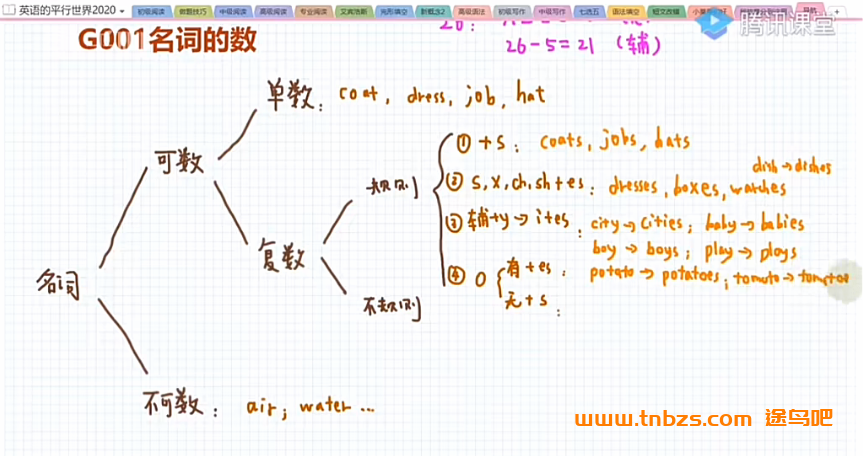 英语的平行世界2020
初级阅读 做题技巧 中级阅读 高级阅读 专业阅读 艾宾浩斯 完形填空 新概念2 高级语法 初级写作 中级写作 七选五 语法填空 短文改错
腾讯课堂
26 - 5 = 21 (辅)
G001名词的数
单数: coat, dress, job, hat
可数
① +s: coats, jobs, hats
dish → dishes
规则
② s, x, ch, sh + es: dresses, boxes, watches
③ 辅+y → i+es: city → cities; baby → babies
boy → boys; play → plays
复数
④ o 有+es: potato → potatoes; tomato → tomatoes
无+s:
名词
不规则
不可数: air; water ...
www.tnbzs.com 途鸟吧